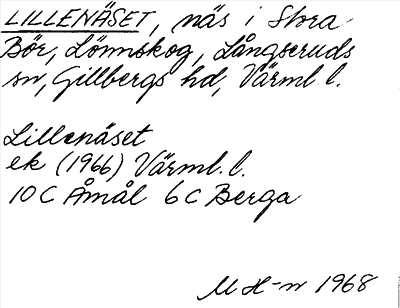 LILLENÄSET, näs i Stora
Bör, Lönnskog, Långseruds
sn, Gillbergs hd, Värml. l.
Lillenäset
ek (1966) Värml. l.
10 C Åmål 6 C Berga
M H-n 1968